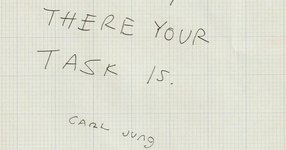 THERE YOUR
TASK IS.
CARL JUNG